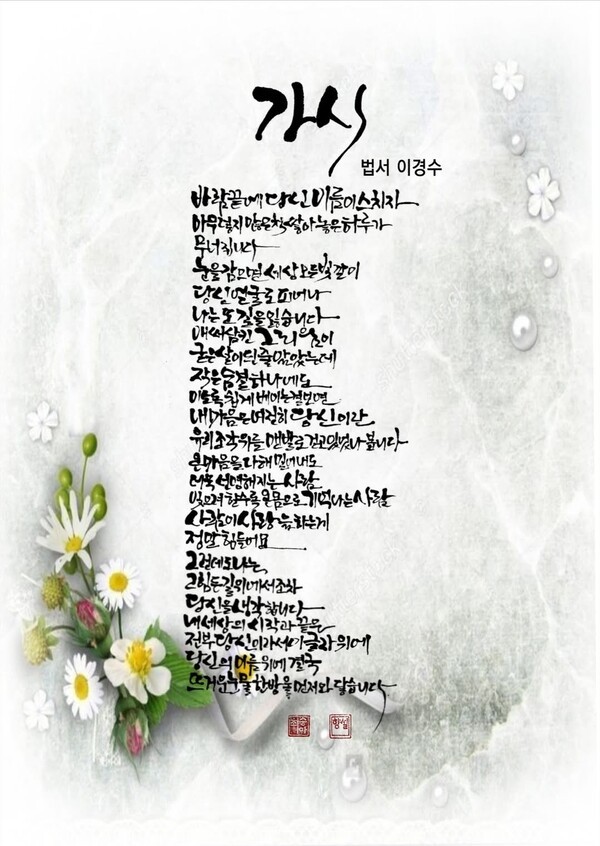 가시
법서 이경수
바람 끝에 당신 이름이 스치자
아무렇지 않은 척 쌓아 놓은 하루가
무너집니다
눈을 감으면 세상 모든 빛 같이
당신 얼굴로 피어나
나는 또 길을 잃습니다
애써 삼킨 그리움이
굳은 살이 된 줄 알았는데
작은 숨결 하나에도
이토록 쉽게 베이는 걸 보면
내 마음은 여전히 당신이란
유리조각 위를 맨발로 걷고 있었나 봅니다
온 마음을 다해 밀어내도
더욱 선명해지는 사람
잊으려 할수록 온몸으로 기억나는 사람
사람이 사랑을 하는게
정말 힘들어요
그런데도 나는,
그 힘든 길 위에서조차
당신을 생각합니다
내 세상의 시작과 끝은
전부 당신이가서 이 글자 위에
당신의 이름 위에 결국
뜨거운 눈물 한 방울 먼저 와 닿습니다